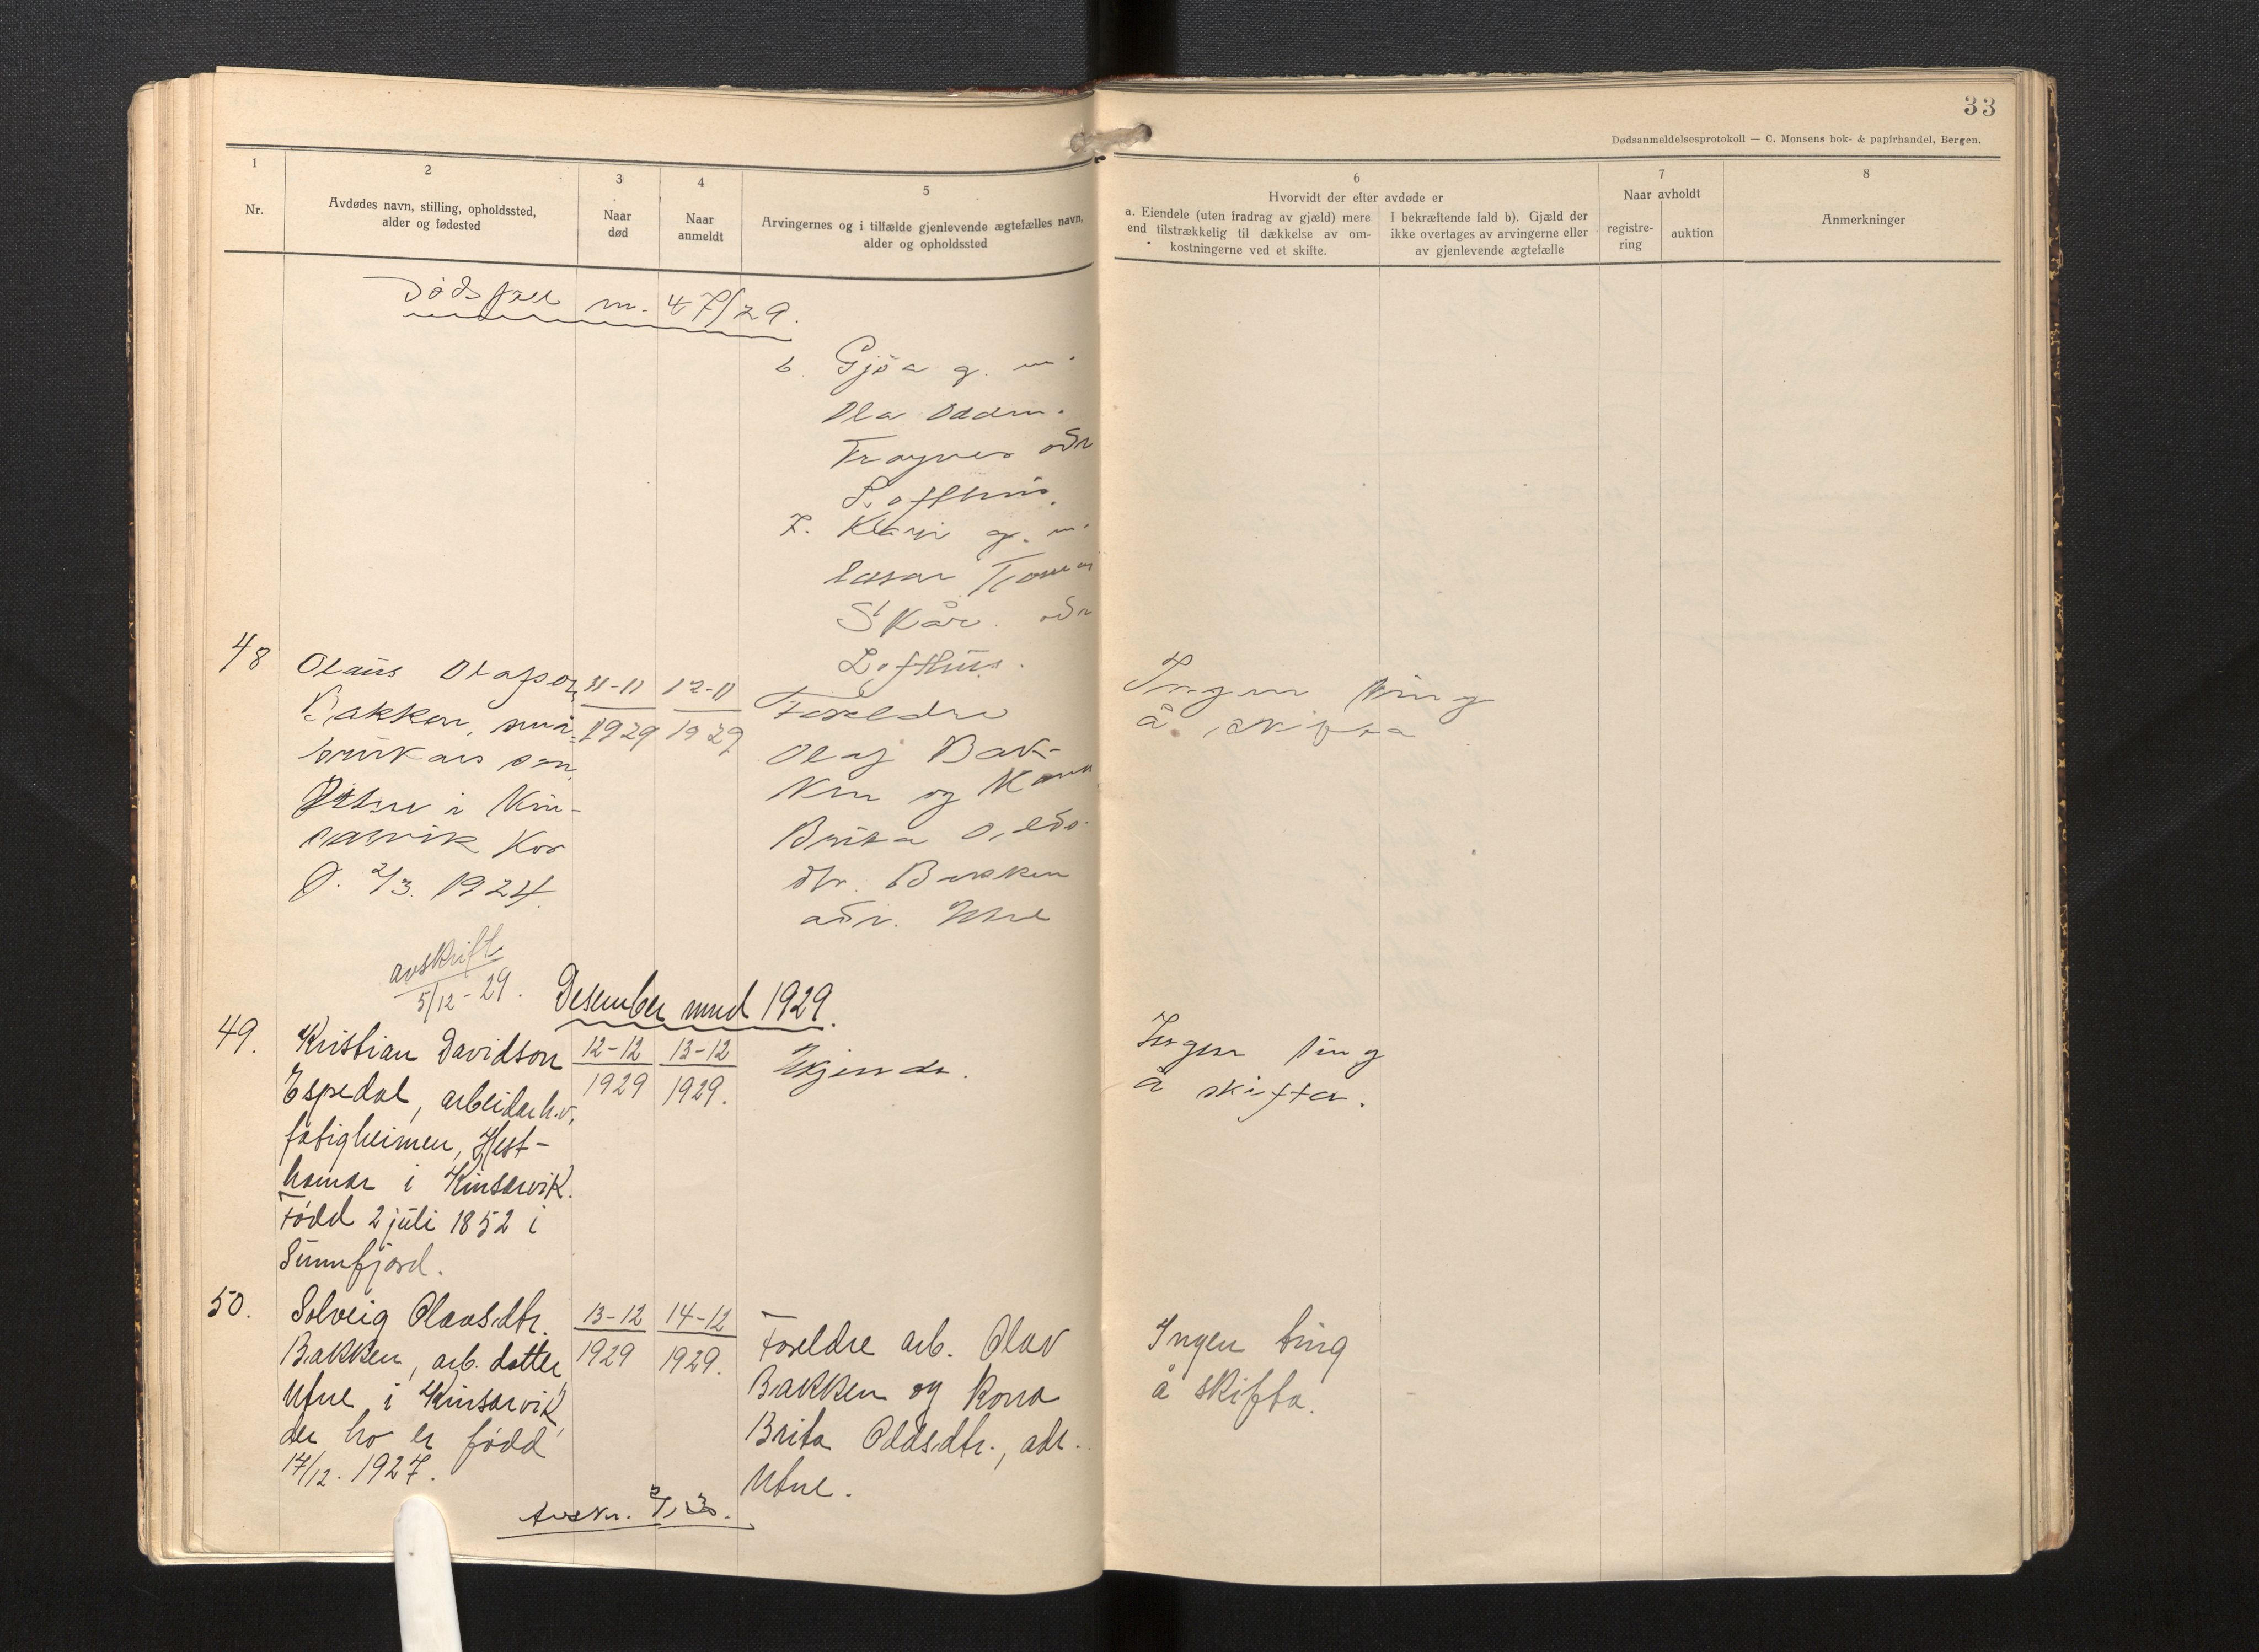 33
Dødsanmeldelsesprotokoll — C. Monsens bok- & papirhandel, Bergen.
1
Nr.
2
Avdødes navn, stilling, opholdssted,
alder og fødested
3
Naar
død
4
Naar
anmeldt
5
Arvingernes og i tilfælde gjenlevende ægtefælles navn,
alder og opholdssted
6
Hvorvidt der efter avdøde er
a. Eiendele (uten fradrag av gjæld) mere
end tilstrækkelig til dækkelse av om-
kostningerne ved et skifte.
I bekræftende fald b). Gjæld der
ikke overtages av arvingerne eller
av gjenlevende ægtefælle
7
Naar avholdt
registre-
ring
auktion
8
Anmerkninger
Dødsfall nr. 47/29.
6. Gjøa g. m.
Ola Oddm.
adr
Lofthus.
7. g. m.
Skår. adr
Lofthus.
48
Olaus Olafson
Bakken, små-
brukars son,
Utne i Kin-
sarvik
f. 2/3. 1924.
11-11
1929
12-11
1929
Foreldre
Olaf Bak-
ken og Kona
Brita Odds-
dtr. Bakken
adr. Utne
Ingen ting
å skifta
avskrift
5/12-29.
Desember mnd 1929.
49.
Kristian Davidson
Espedal, arbeidar h.v.,
fatigheimen, Hest-
hamar i Kinsarvik.
Född 2 juli 1852 i
Sunnfjord.
12-12
1929
13-12
1929.
Ukjende.
Ingen ting
å skifta.
50.
Solveig Olavsdtr.
Bakken, arb. datter,
Utne i Kinsarvik,
der ho er född
17/12. 1927.
13-12
1929
14-12
1929.
Foreldre arb. Olav
Bakken og kona
Brita Oddsdtr., adr.
Utne.
Ingen ting
å skifta.
Avskr.